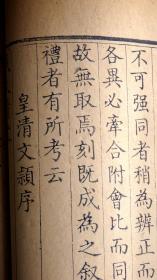 不可强同者稍為辨正而
各異必牽合附會比而同
故無取焉刻既成為之叙
禮者有所考云
皇清文頴序